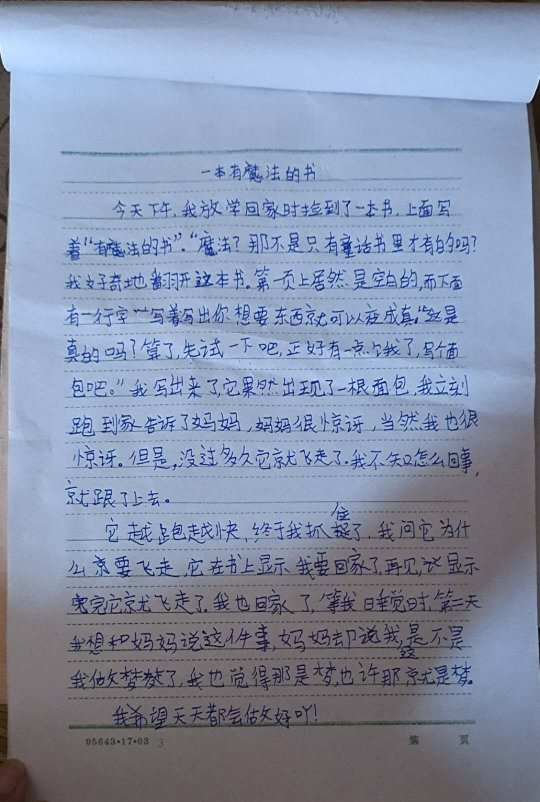 一本有魔法的书
今天下午,我放学回家时捡到了一本书,上面写
着“有魔法的书”。“魔法?那不是只有童话书里才有的吗?
我好奇地翻开这本书。第一页上居然是空白的,而下面
有一行字“写着写出你想要东西就可以变成真”“这是
真的吗?算了,先试一下吧,正好有一点饿了,写个面
包吧。”我写出来了,它果然出现了一根面包,我立刻
跑到家告诉了妈妈,妈妈很惊讶,当然我也很
惊讶。但是,没过多久它就飞走了。我不知怎么回事,
就跟了上去。
它越跑越快,终于我抓住了,我问它为什
么就要飞走,它在书上显示我要回家了,再见,说显示
完它就飞走了。我也回家了,等我睡觉时,第二天
我想和妈妈说这件事,妈妈却说我是不是
我做梦了,我也觉得那是梦,也许那就是梦。
我希望天天都会做好吖!
05643·17·03 3 第 页